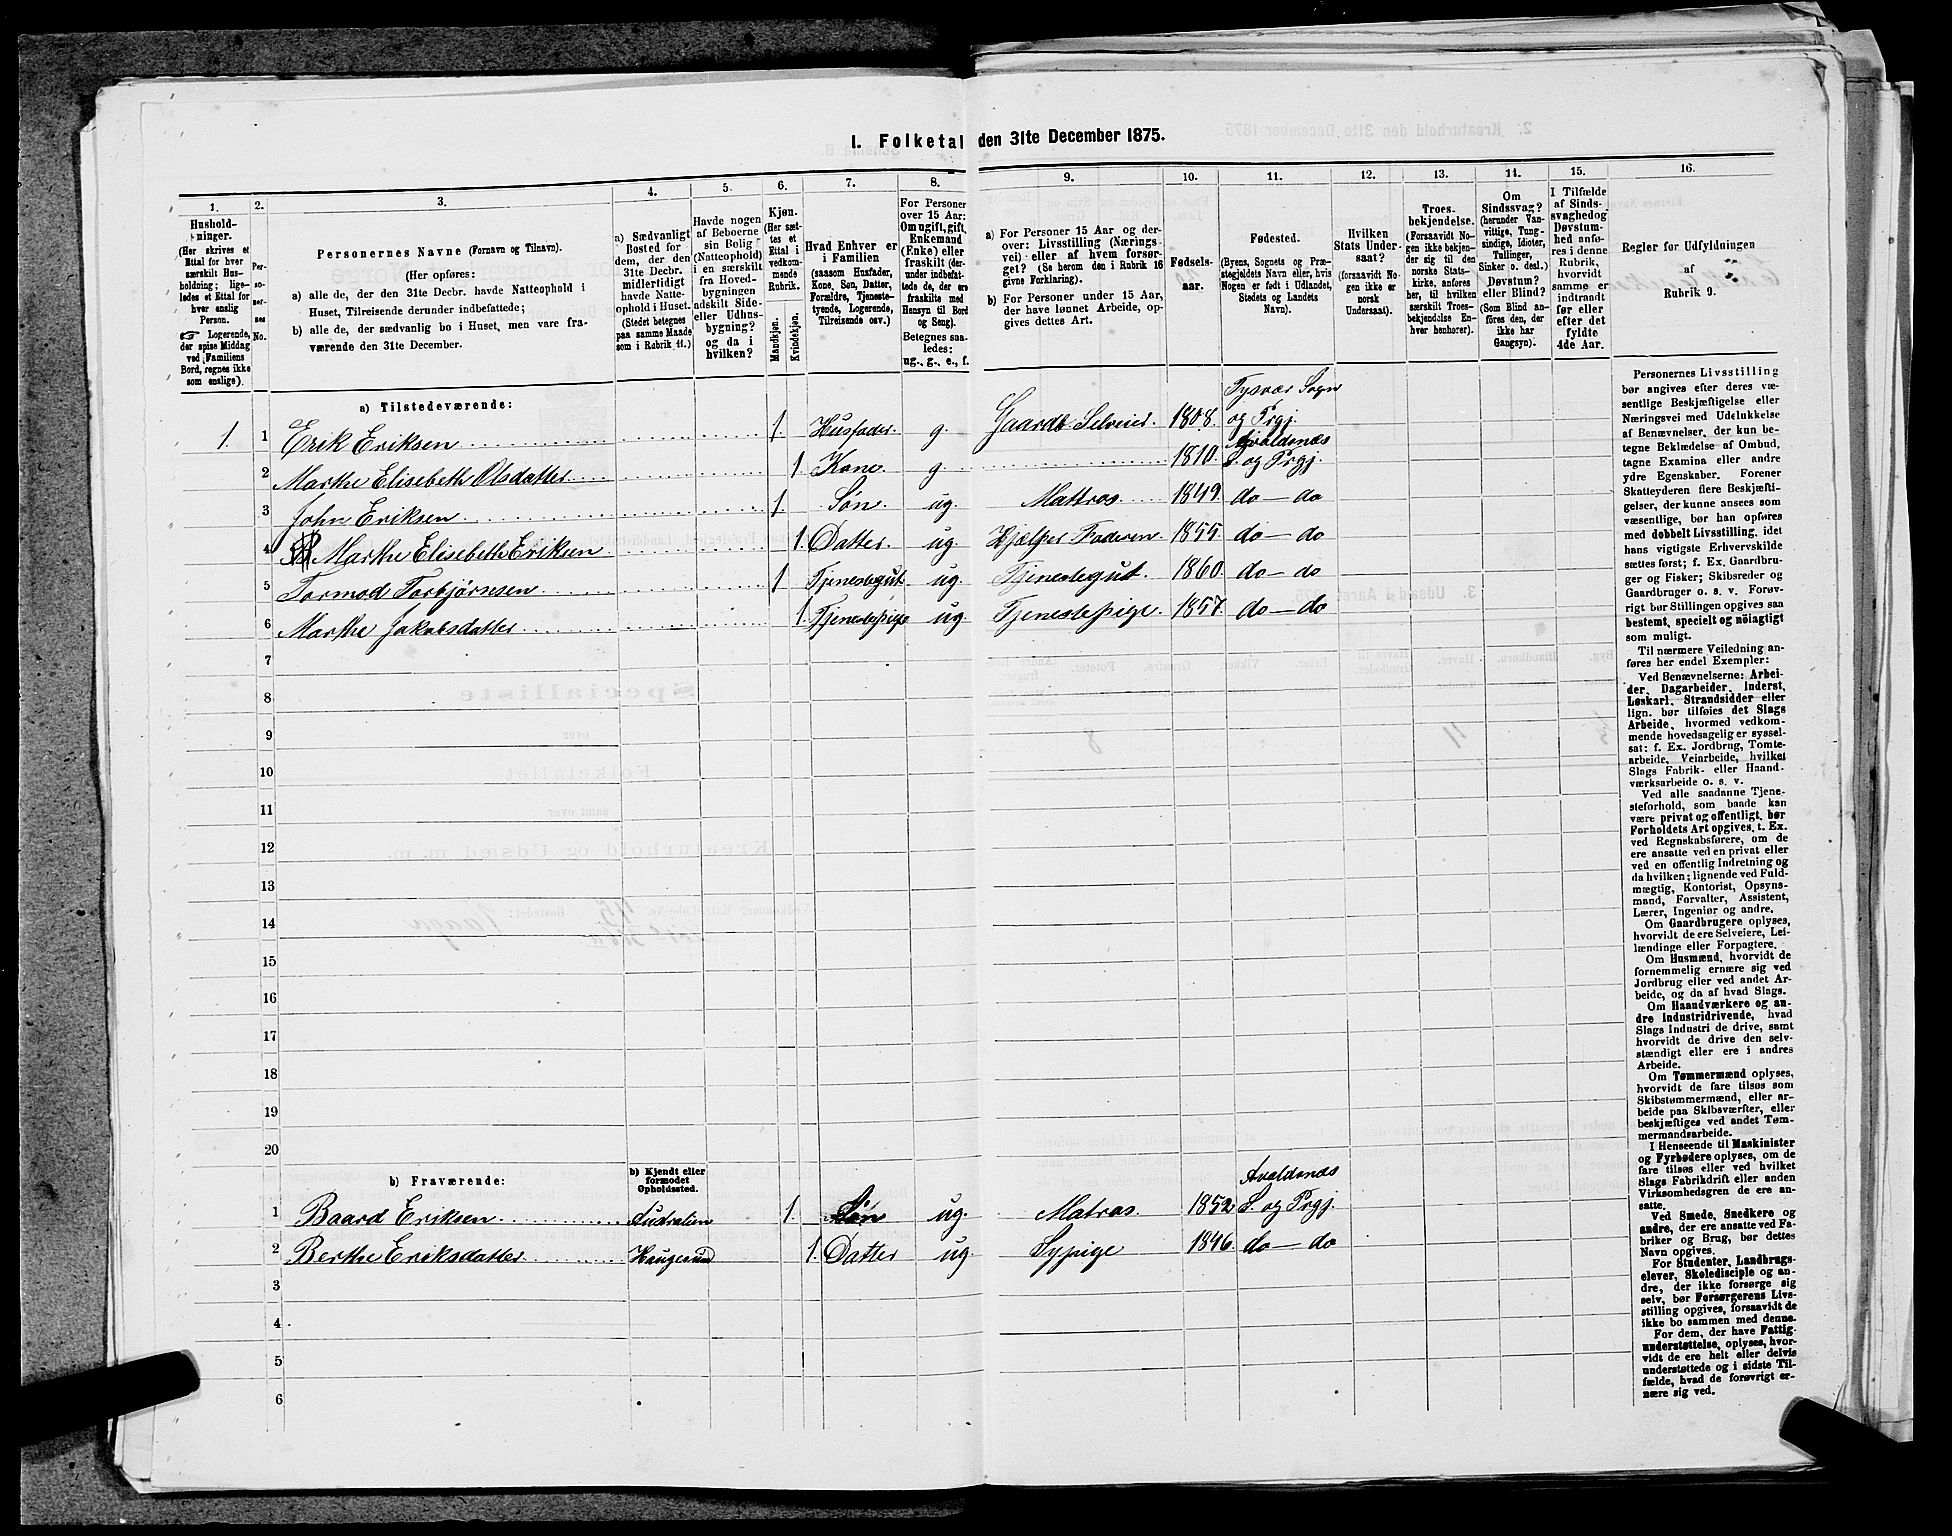 1. Folketal den 31te December 1875.
1. 2. 3. 4. 5. 6. 7. 8. 9. 10. 11. 12. 13. 14. 15. 16.
Hushold-
ninger.
(Her skrives et
Ettal for hver
særskilt Hus-
holdning; lige-
ledes et Ettal for
hver enslig
Person.
☞ Logerende,
der spise Middag
ved Familiens
Bord, regnes ikke
som enslige).
Per-
so-
ner-
nes
No.
Personernes Navne (Fornavn og Tilnavn).
(Her opføres:
a) alle de, der den 31te Decbr. havde Natteophold i
Huset, Tilreisende derunder indbefattede;
b) alle de, der sædvanlig bo i Huset, men vare fra-
værende den 31te December.
a) Sædvanligt
Bosted for
dem, der den
31te Decbr.
midlertidigt
havde Natte-
ophold i Huset.
(Stedet betegnes
paa samme Maade
som i Rubrik 11.)
Havde nogen
af Beboerne
sin Bolig
(Natteophold)
i en særskilt
fra Hoved-
bygningen
adskilt Side-
eller Udhus-
bygning?
og da i
hvilken?
Kjøn.
(Her sæt-
tes et
Ettal i
vedkom-
mende
Rubrik.
Mandkjøn.
Kvindekjøn.
Hvad Enhver er
i Familien
(saasom Husfader,
Kone, Søn, Datter,
Forældre, Tjeneste-
tyende, Logerende,
Tilreisende osv.)
For Personer
over 15 Aar:
Om ugift, gift,
Enkemand
(Enke) eller
fraskilt (der-
under indbefat-
tede de, der ere
fraskilte med
Hensyn til Bord
og Seng).
Betegnes saa-
ledes:
ug., g., e., f.
a) For Personer 15 Aar og der-
over: Livsstilling (Nærings-
vei) eller af hvem forsør-
get? (Se herom den i Rubrik 16
givne Forklaring).
b) For Personer under 15 Aar,
der have lønnet Arbeide, op-
gives dettes Art.
Fødsels-
aar.
Fødested.
(Byens, Sognets og Præ-
stegjeldets Navn eller, hvis
Nogen er født i Udlandet,
Stedets og Landets
Navn).
Hvilken
Stats Under-
saat?
(forsaavidt No-
gen ikke er
norsk
Undersaat).
Troes-
bekjendelse.
(Forsaavidt No-
gen ikke bekjen-
der sig til den
norske Stats-
kirke, anføres
her, til hvilken
særskilt Troes-
bekjendelse En-
hver henhører).
Om
Sindssvag?
(herunder Van-
vittige, Tung-
sindige, Idioter,
Tullinger,
Sinker o. desl.)
Døvstum?
eller Blind?
(Som Blind an-
føres den, der
ikke har
Gangsyn).
I Tilfælde
af Sinds-
svaghed og
Døvstum-
hed anfø-
res i denne
Rubrik,
hvorvidt
samme er
indtraadt
før eller
efter det
fyldte
4de Aar.
Regler for Udfyldningen
af
Rubrik 9.
a) Tilstedeværende:
Tysvær Sogn
1. 1 Erik Eriksen 1. Husfader. g. Gaardb. Selveier. 1808. og Prgj.
Avaldsnæs
2 Marthe Elisebeth Olsdatter 1. Kone. g. 1810. S. og Prgj.
3 John Eriksen 1 Søn ug. Mattros. 1849. do — do
4 Marthe Elisebeth Eriksen 1. Datter. ug. Hjælper Faderen. 1855. do — do
5 Tormod Torbjørnsen 1 Tjenestegut. ug. Tjenestegut. 1860. do — do
6 Marthe Jakobsdatter 1. Tjenestepige ug. Tjenestepige. 1857. do — do
7
8
9
10
11
12
13
14
15
16
17
18
19
20
b) Fraværende:
b) Kjendt eller
formodet
Opholdssted.
Avaldsnæs
1 Baard Eriksen Australien 1. Søn ug. Matros. 1852 S. og Prgj.
2 Berthe Eriksdatter Haugesund 1. Datter ug. Sypige 1846. do — do
3
4
5
6
Personernes Livsstilling
bør angives efter deres væ-
sentlige Beskjæftigelse eller
Næringsvei med Udelukkelse
af Benævnelser, der kun be-
tegne Beklædelse af Ombud,
tagne Examina eller andre
ydre Egenskaber. Forener
Skatteyderen flere Beskjæfti-
gelser, der kunne ansees som
væsentlige, bør han opføres
med dobbelt Livsstilling, idet
hans vigtigste Erhvervskilde
sættes først; f. Ex. Gaardbru-
ger og Fisker; Skibsreder og
Gaardbruger o. s. v. Forøv-
rigt bør Stillingen opgives saa
bestemt, specielt og nøiagtigt
som muligt.
Til nærmere Veiledning an-
føres her endel Exempler:
Ved Benævnelserne: Arbei-
der, Dagarbeider, Inderst,
Løskarl, Strandsidder eller
lign. bør tilføies det Slags
Arbeide, hvormed vedkom-
mende hovedsagelig er syssel-
sat: f. Ex. Jordbrug, Tomte-
arbeide, Veiarbeide, hvilket
Slags Fabrik- eller Haand-
værksarbeide o. s. v.
Ved alle saadanne Tjene-
steforhold, som baade kan
være privat og offentligt, bør
Forholdets Art opgives, t. Ex.
ved Regnskabsførere, om de
ere ansatte ved en privat eller
ved en offentlig Indretning og
da hvilken; lignende ved Fuld-
mægtig, Kontorist, Opsyns-
mand, Forvalter, Assistent,
Lærer, Ingeniør og andre.
Om Gaardbrugere oplyses,
hvorvidt de ere Selveiere, Lei-
lændinge eller Forpagtere.
Om Husmænd, hvorvidt de
fornemmelig ernære sig ved
Jordbrug eller ved andet Ar-
beide, og da af hvad Slags.
Om Haandværkere og an-
dre Industridrivende, hvad
Slags Industri de drive, samt
hvorvidt de drive den selv-
stændigt eller ere i andres
Arbeide.
Om Tømmermænd oplyses,
hvorvidt de fare tilsøs som
Skibstømmermænd, eller ar-
beide paa Skibsværfter, eller
beskjæftiges ved andet Tøm-
mermandsarbeide.
I Henseende til Maskinister
og Fyrbødere oplyses, om de
fare tilsøs eller ved hvilket
Slags Fabrikdrift eller anden
Virksomhedsgren de ere an-
satte.
Ved Smede, Snedkere og
andre, der ere ansatte ved Fa-
briker og Brug, bør dettes
Navn opgives.
For Studenter, Landbrugs-
elever, Skoledisciple og an-
dre, der ikke forsørge sig
selv, bør Forsørgerens Livs-
stilling opgives, forsaavidt de
ikke bo sammen med denne.
For dem, der have Fattig-
understøttelse, oplyses, hvor-
vidt de ere helt eller delvis
understøttede og i sidste Til-
fælde, hvad de forøvrigt er-
nære sig ved.